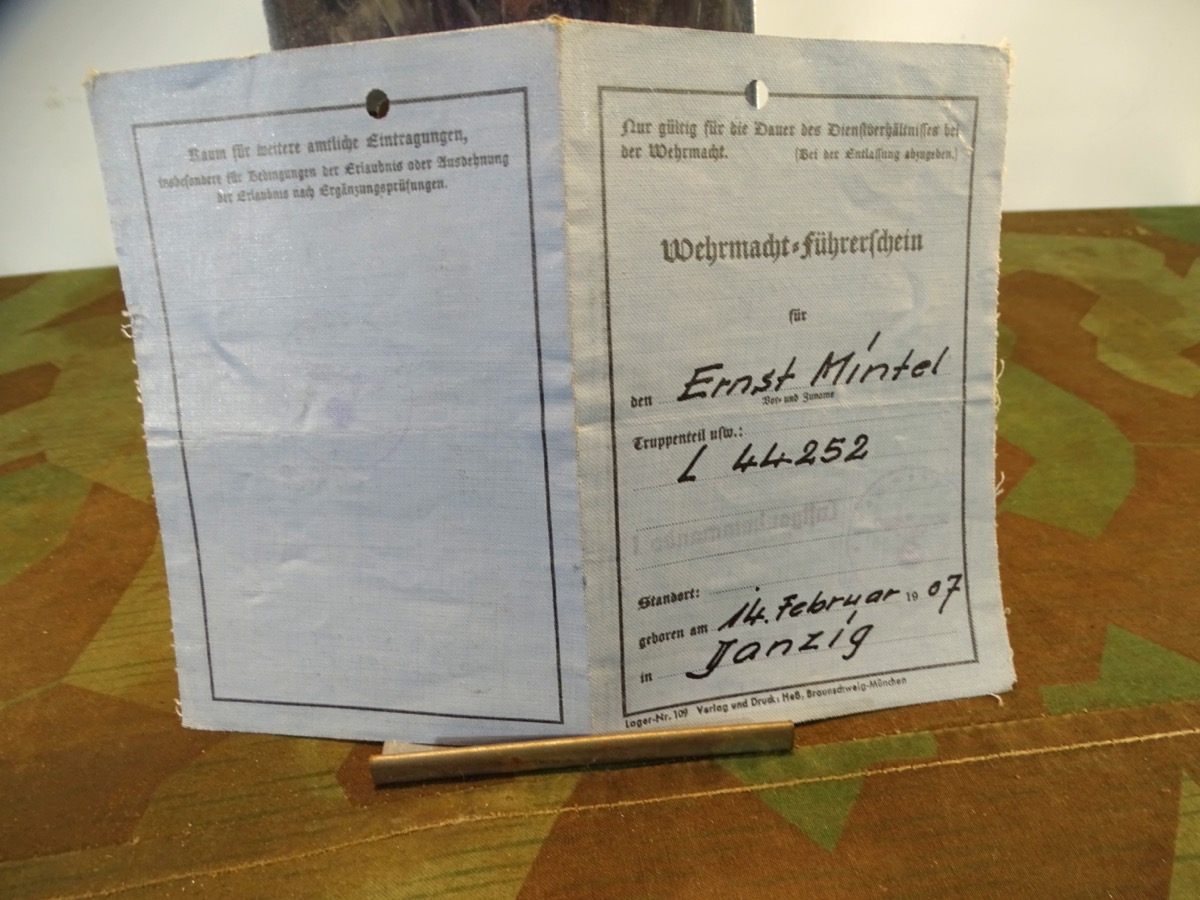 Raum für weitere amtliche Eintragungen,
insbesondere für Bedingungen der Erlaubnis oder Ausdehnung
der Erlaubnis nach Ergänzungsprüfungen.
Nur gültig für die Dauer des Dienstverhältnisses bei
der Wehrmacht. (Bei der Entlassung abzugeben.)
Wehrmacht-Führerschein
für
den Ernst Mintel
Vor- und Zuname
Truppenteil usw.:
L 44252
Standort:
geboren am 14. Februar 19 07
in Danzig
Lager-Nr. 109 Verlag und Druck: Heß, Braunschweig-München